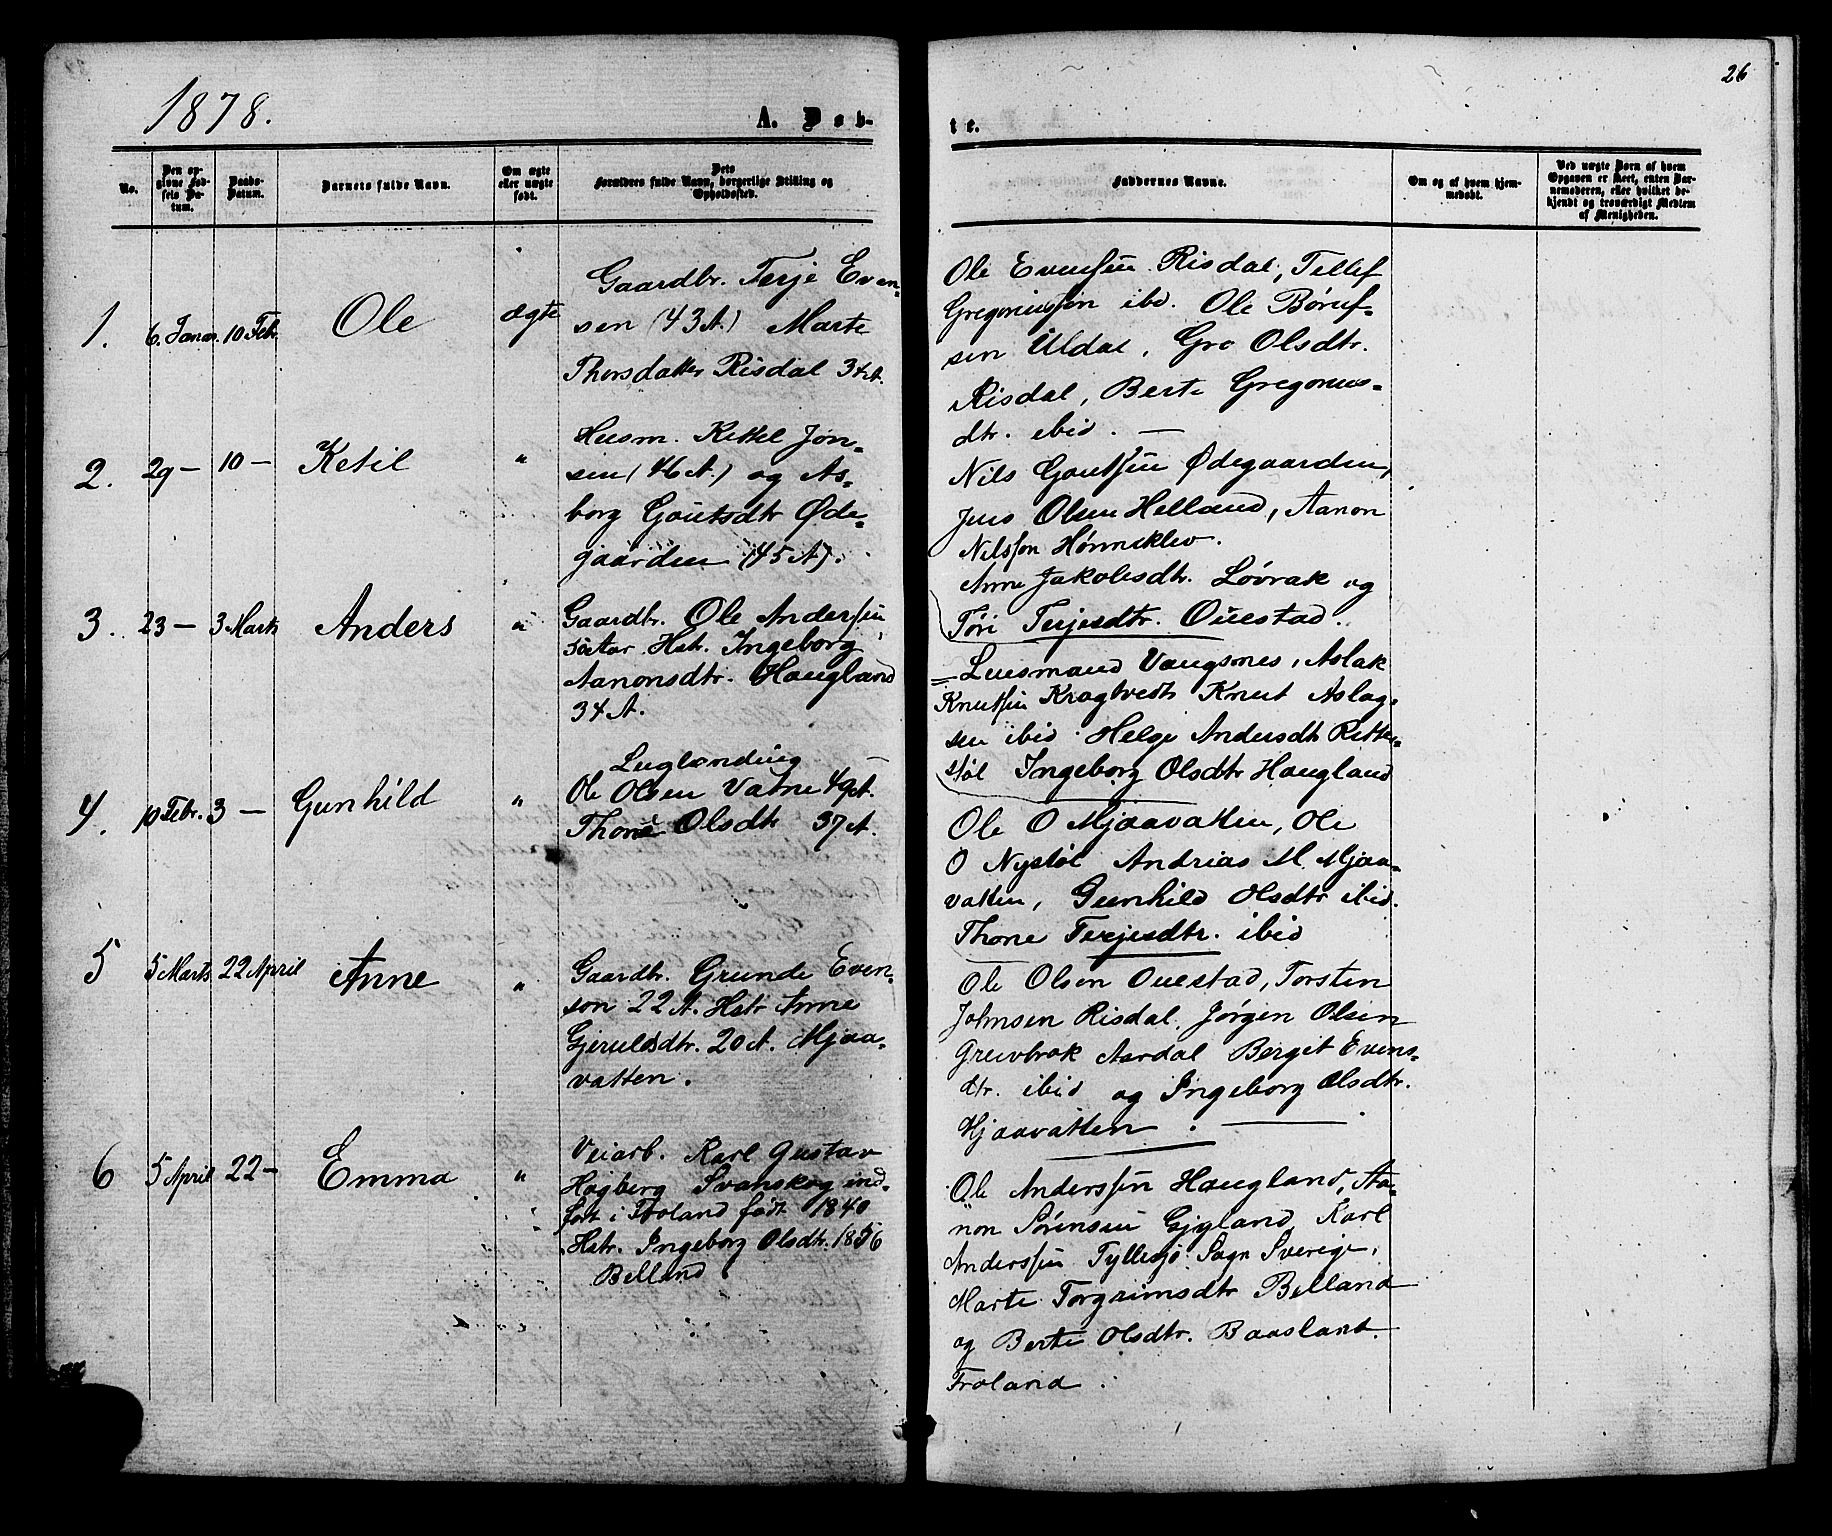 1878.
A. Døb-
te.
26
No.
Den op-
givne Fød-
sels Da-
tum.
Daabs-
Datum.
Barnets fulde Navn.
Om ægte
eller uægte
født.
Dets
Forældres fulde Navn, borgerlige Stilling og
Opholdssted.
Faddernes Navne.
Om og af hvem hjem-
medøbt.
Ved uægte Børn af hvem
Opgaven er skeet, enten Bar-
nemoderen, eller hvilket be-
kjendt og troværdigt Medlem
af Menigheden.
1. 6. Januar. 10 Febr. Ole ægte
Gaardbr. Terje Even-
sen (43 A.) Marte
Thorsdatter Risdal 34 A.
Ole Evensen Risdal, Tellef
Gregoriussøn ibd. Ole Børuf-
sen Uldal, Gro Olsdtr.
Risdal, Berte Gregorius-
dtr. ibid. —
2. 29 — 10 — Ketil "
Husm. Kettel Jøn-
sen (46 A.) og As-
borg Goutsdtr Øde-
gaarden (45 A).
Nils Goutsen Ødegaarden,
Jens Olsen Helland, Aanon
Nilsson Hønneklev.
Anne Jakobsdtr. Løvrak og
Tøri Terjesdtr. Ouestad.
3. 23 — 3 Marts Anders "
Gaardbr. Ole Anderssen
Aar. Hstr. Ingeborg
Aanonsdtr. Haugland
34 A.
= Lensmand Vangsnes, Aslak
Knutsen Kragtvedt Knut Aslag-
sen ibid. Helge Andersdt Rette-
støl Ingeborg Olsdtr Haugland
4. 10 Febr. 3 — Gunhild "
Inglænding —
Ole Olsen Vatne 49 A.
Thone Olsdtr 37 A.
Ole O Mjaavatten, Ole
O Nystøl Andrias M. Mjaa-
vatten, Gunhild Olsdtr ibid.
Thone Terjesdtr. ibid
5 5 Marts 22 April Anne "
Gaardbr. Grunde Even-
son 22 A. Hstr Anne
Gjeruldsdtr. 20 A. Mjaa-
vatten.
Ole Olsen Ouestad, Torsten
Johnsen Risdal. Jørgen Olsen
Greivbrok Aardal Bergit Evens-
dtr. ibid og Ingeborg Olsdtr.
Mjaavatten. —
6 5 April 22 — Emma "
Veiarb. Karl Gustav
Høgberg Svanskog ind-
ført i Froland født 1840
Hstr. Ingeborg Olsdtr. 1856
Belland.
Ole Anderssen Haugland, Aa-
non Sørensen Gjyland, Karl
Anderssen Tyllesjø Sogn Sverige,
Marte Torgrimsdtr Belland
og Berte Olsdtr. Baasland.
Froland.